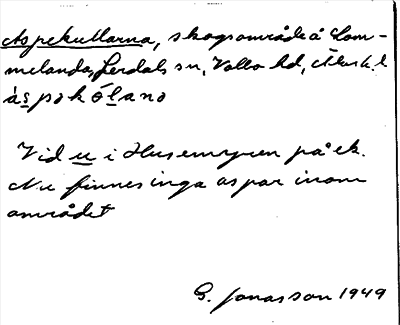 Aspekullarna, skogsområde å Hom-
melanda, Lerdals sn, Valbo hd, Älvsb. l
àspəkólana
Vid u i Husemyren på ek.
Nu finnes inga aspar inom
området
G. Jonasson 1949